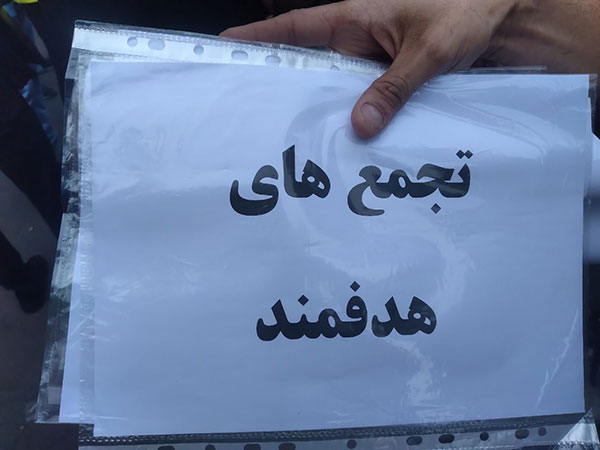 تجمع های
هدفمند